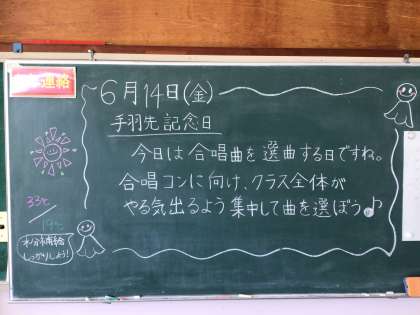 連絡
6月14日(金)
手羽先記念日
今日は合唱曲を選曲する日ですね。
合唱コンに向け、クラス全体が
やる気出るよう集中して曲を選ぼう♪
33℃
19℃
水分補給
しっかりしよう！